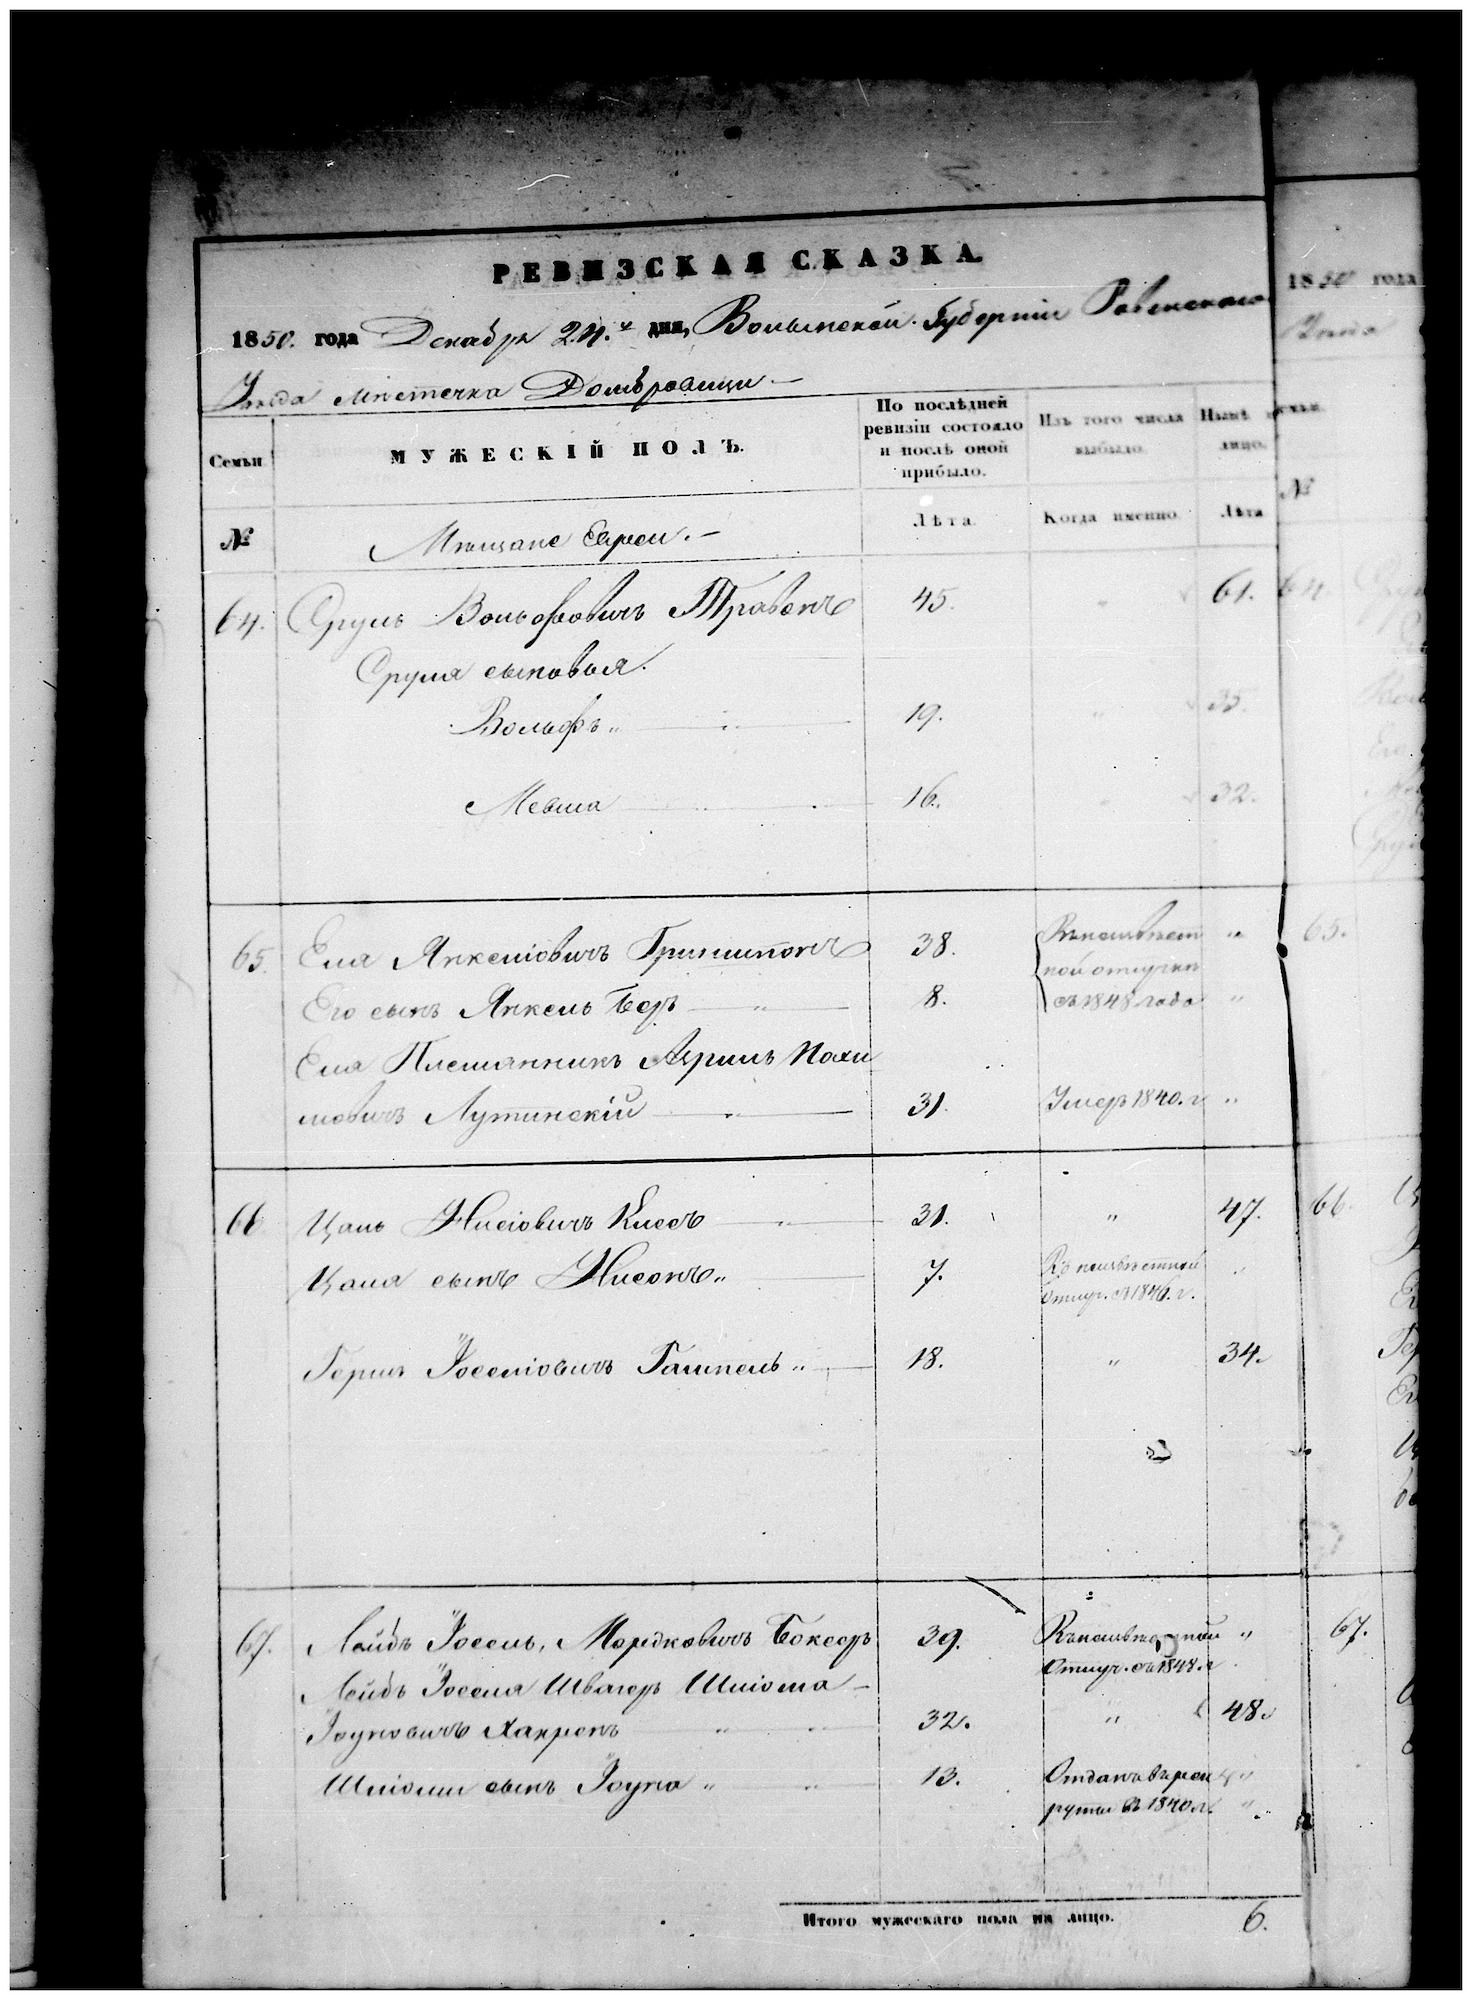 РЕВИЗСКАЯ СКАЗКА.
1850. года Декабря 24.го дня, Волынской Губернии Ровенскаго
Уезда местечка Домбровицы
Семьи.
МУЖЕСКІЙ ПОЛЪ.
По послѣдней
ревизіи состояло
и послѣ оной
прибыло.
Изъ того числа
выбыло.
Нынѣ
лицо.
№
Мѣщане Евреи.
Лѣта.
Когда именно.
Лѣта
64. Сруль Вольфовичъ 45. " 61.
Сруля сыновья.
Вольфъ " 19. " 35.
Мевша 16. " 32.
65. Еля Янкеліовичъ 38. Въ неизвѣст "
ной отлучкѣ
Его сынъ Янкель Беръ 8. съ 1848 года "
Еля Племянникъ
Лутинскій 31. Умеръ 1840. г "
66 Цаль Нисіовичъ 31. " 47.
Цаля сынъ Нисонъ " 7. Въ неизвѣстной "
отлуч. съ 1846. г.
Гершъ Іоселіовичъ 18. " 34.
67. Лейбъ Іосель, Мордковичъ Боксеръ 39. Въ неизвѣстной "
Отлуч. съ 1848. г
Лейбъ Іоселя Швагеръ Шліома
32. " 48.
Шліомы сынъ 13. Отданъ въ рек "
руты въ 1840 г. "
Итого мужескаго пола на лицо. 6.
1850 года
Семьи.
№
64
65.
66.
67.